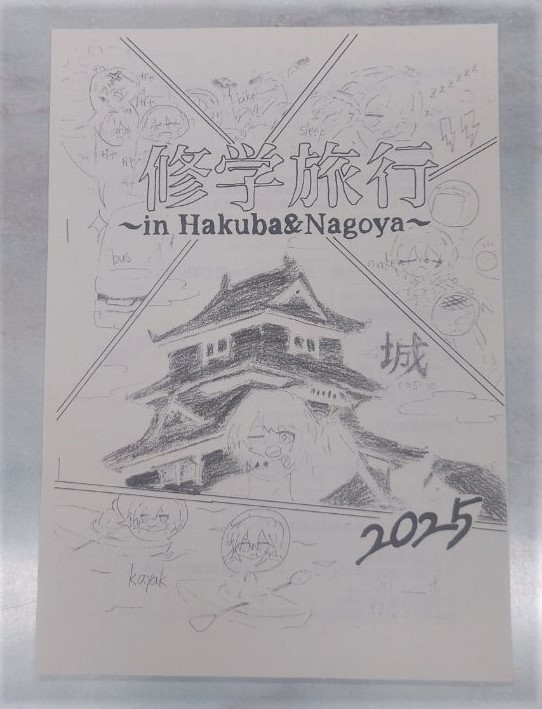 zzzzzz
take
sleep
修学旅行
~in Hakuba&Nagoya~
bus
make
城
castle
2025
kayak